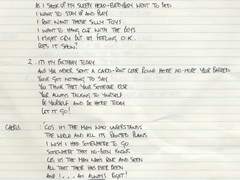 AS I SOAK UP MY SLEEPY HEAD - EVERYBODY WENT TO BED
I WANT TO STAY UP AND PLAY
I DON'T WANT THESE SILLY TOYS
I WANT TO HANG OUT WITH THE BOYS
I MIGHT CRY BUT I'M FEELING O.K.
DOES IT SHOW?
2. IT'S MY BIRTHDAY TODAY
AND YOU NEVER SENT A CARD - DON'T COME ROUND HERE NO MORE YOUR
YOU'VE GOT NOTHING TO SAY
YOU THINK THAT YOUR SOMEONE ELSE
YOUR ALWAYS TALKING TO YOURSELF
BE YOURSELF AND BE HERE TODAY
LET IT GO!
CHORUS: 'COS I'M THE MAN WHO UNDERSTANDS
THE WORLD AND ALL ITS PLANS
I WISH I HAD SOMEWHERE TO GO
SOMEWHERE THAT NO-BODY KNOWS
COS I'M THE MAN WHO'S DONE AND SEEN
ALL THAT THERE HAS EVER BEEN
AND I .... AM ALWAYS RIGHT!